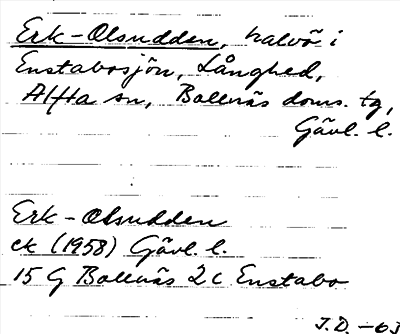 Erk-Olsudden, halvö i
Enstabosjön, Långhed,
Alfta sn, Bollnäs doms. tg,
Gävl. l.
Erk-Olsudden
ek (1958) Gävl. l.
15 G Bollnäs 2 c Enstabo
J.D. -63